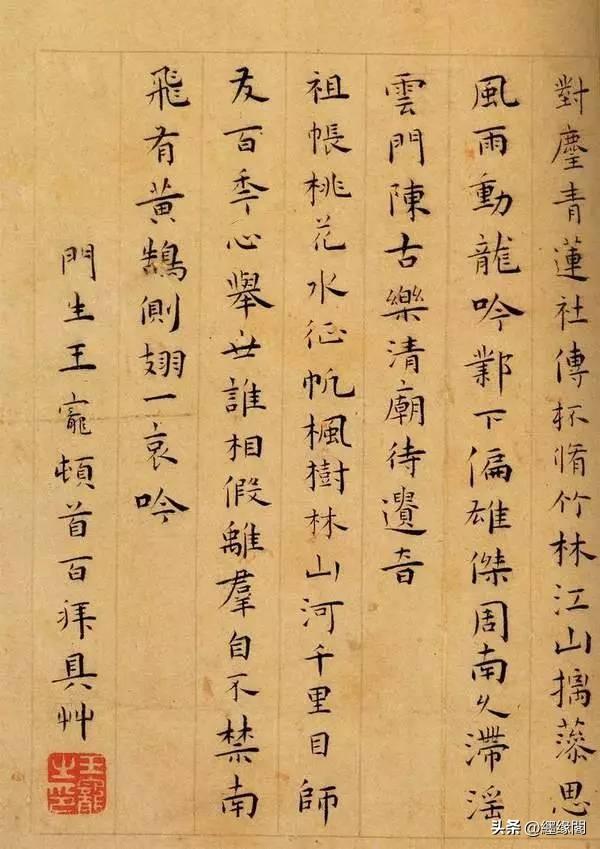 對麈青蓮社傳杯脩竹林江山摛藻思
風雨動龍吟鄴下偏雄傑周南久滯淫
雲門陳古樂清廟待遺音
祖帳桃花水征帆楓樹林山河千里目師
友百秊心舉世誰相假離羣自不禁南
飛有黃鵠側翅一哀吟
門生王寵頓首百拜具艸
王寵之印
头条 @經缘閣